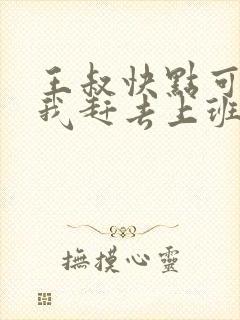 王叔快點可
我赶去上班
撫摸心靈